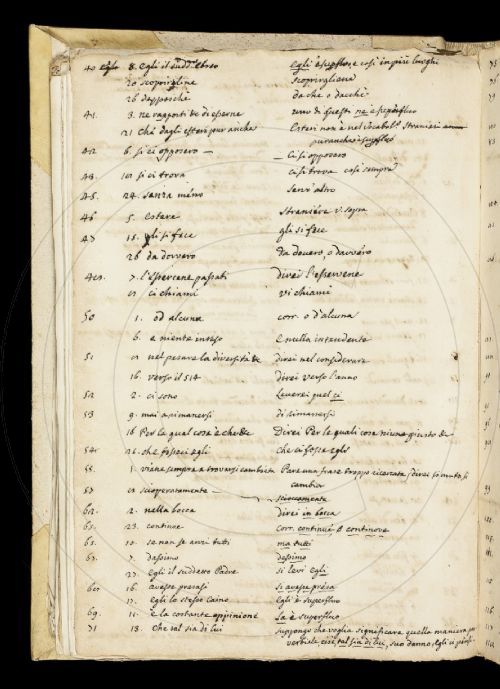 40 8. Egli il sudd.° Ebreo egli è superfluo e così in più luoghi
20 scoprirgline scoprirgliene
26 dappoichè da che o dacchè
41. 3. ne rapporti tè di esserne uno di questi ne è superfluo
21 che dagli esteri pur anche Esteri non è nel Vocabol.° Stranieri
pur anche è superfluo
42 6. si ci opposero — — Ci si opposero
43. si ci trova ci si trova così sempre
45. 24. sanza méno senz'altro
46 5. Estere Straniére v. sopra
47 15. gli si fece gli si fece
26 da dovvero da dovero, o davvéro
7. l'essercene passati direi l'esservene
ci chiami vi chiami
50 1. od alcuna corr. o d'alcuna
6. e niente inteso e nulla intendente
51 nel pesare la diversità &c direi nel considerare
16. verso il 514 direi verso l'anno
52 2. ci sono Leverei quel ci
53 9. mai a rimanersi di rimanersi
16 Per la qual cosa è che &c Direi Per le quali cose niuno giusto &c
54. 26. che fosseci egli che ci fosse egli
55. 1. viene sempre a trovarsi cambiata Pare una frase troppo ricercata, direi si muta, si
cambia
57 scioperatamente — scioccamente
62. 2. nella bocca Direi in bocca
63. 23. continue corr. continui, o continove
65. 10. se non se anzi tutti ma tutti
67. 7. dassimo dessimo
27. Egli il suddetto Padre si levi egli
16. avesse presasi si avesse presa
17. egli lo stesso Caino Egli è superfluo
69. 11. è la costante oppinione La è superfluo
71 13. che tal sia di lui suppongo che voglia significare quella maniera pro-
verbiale cioè tal sia di lui, suo danno, egli ci pensi